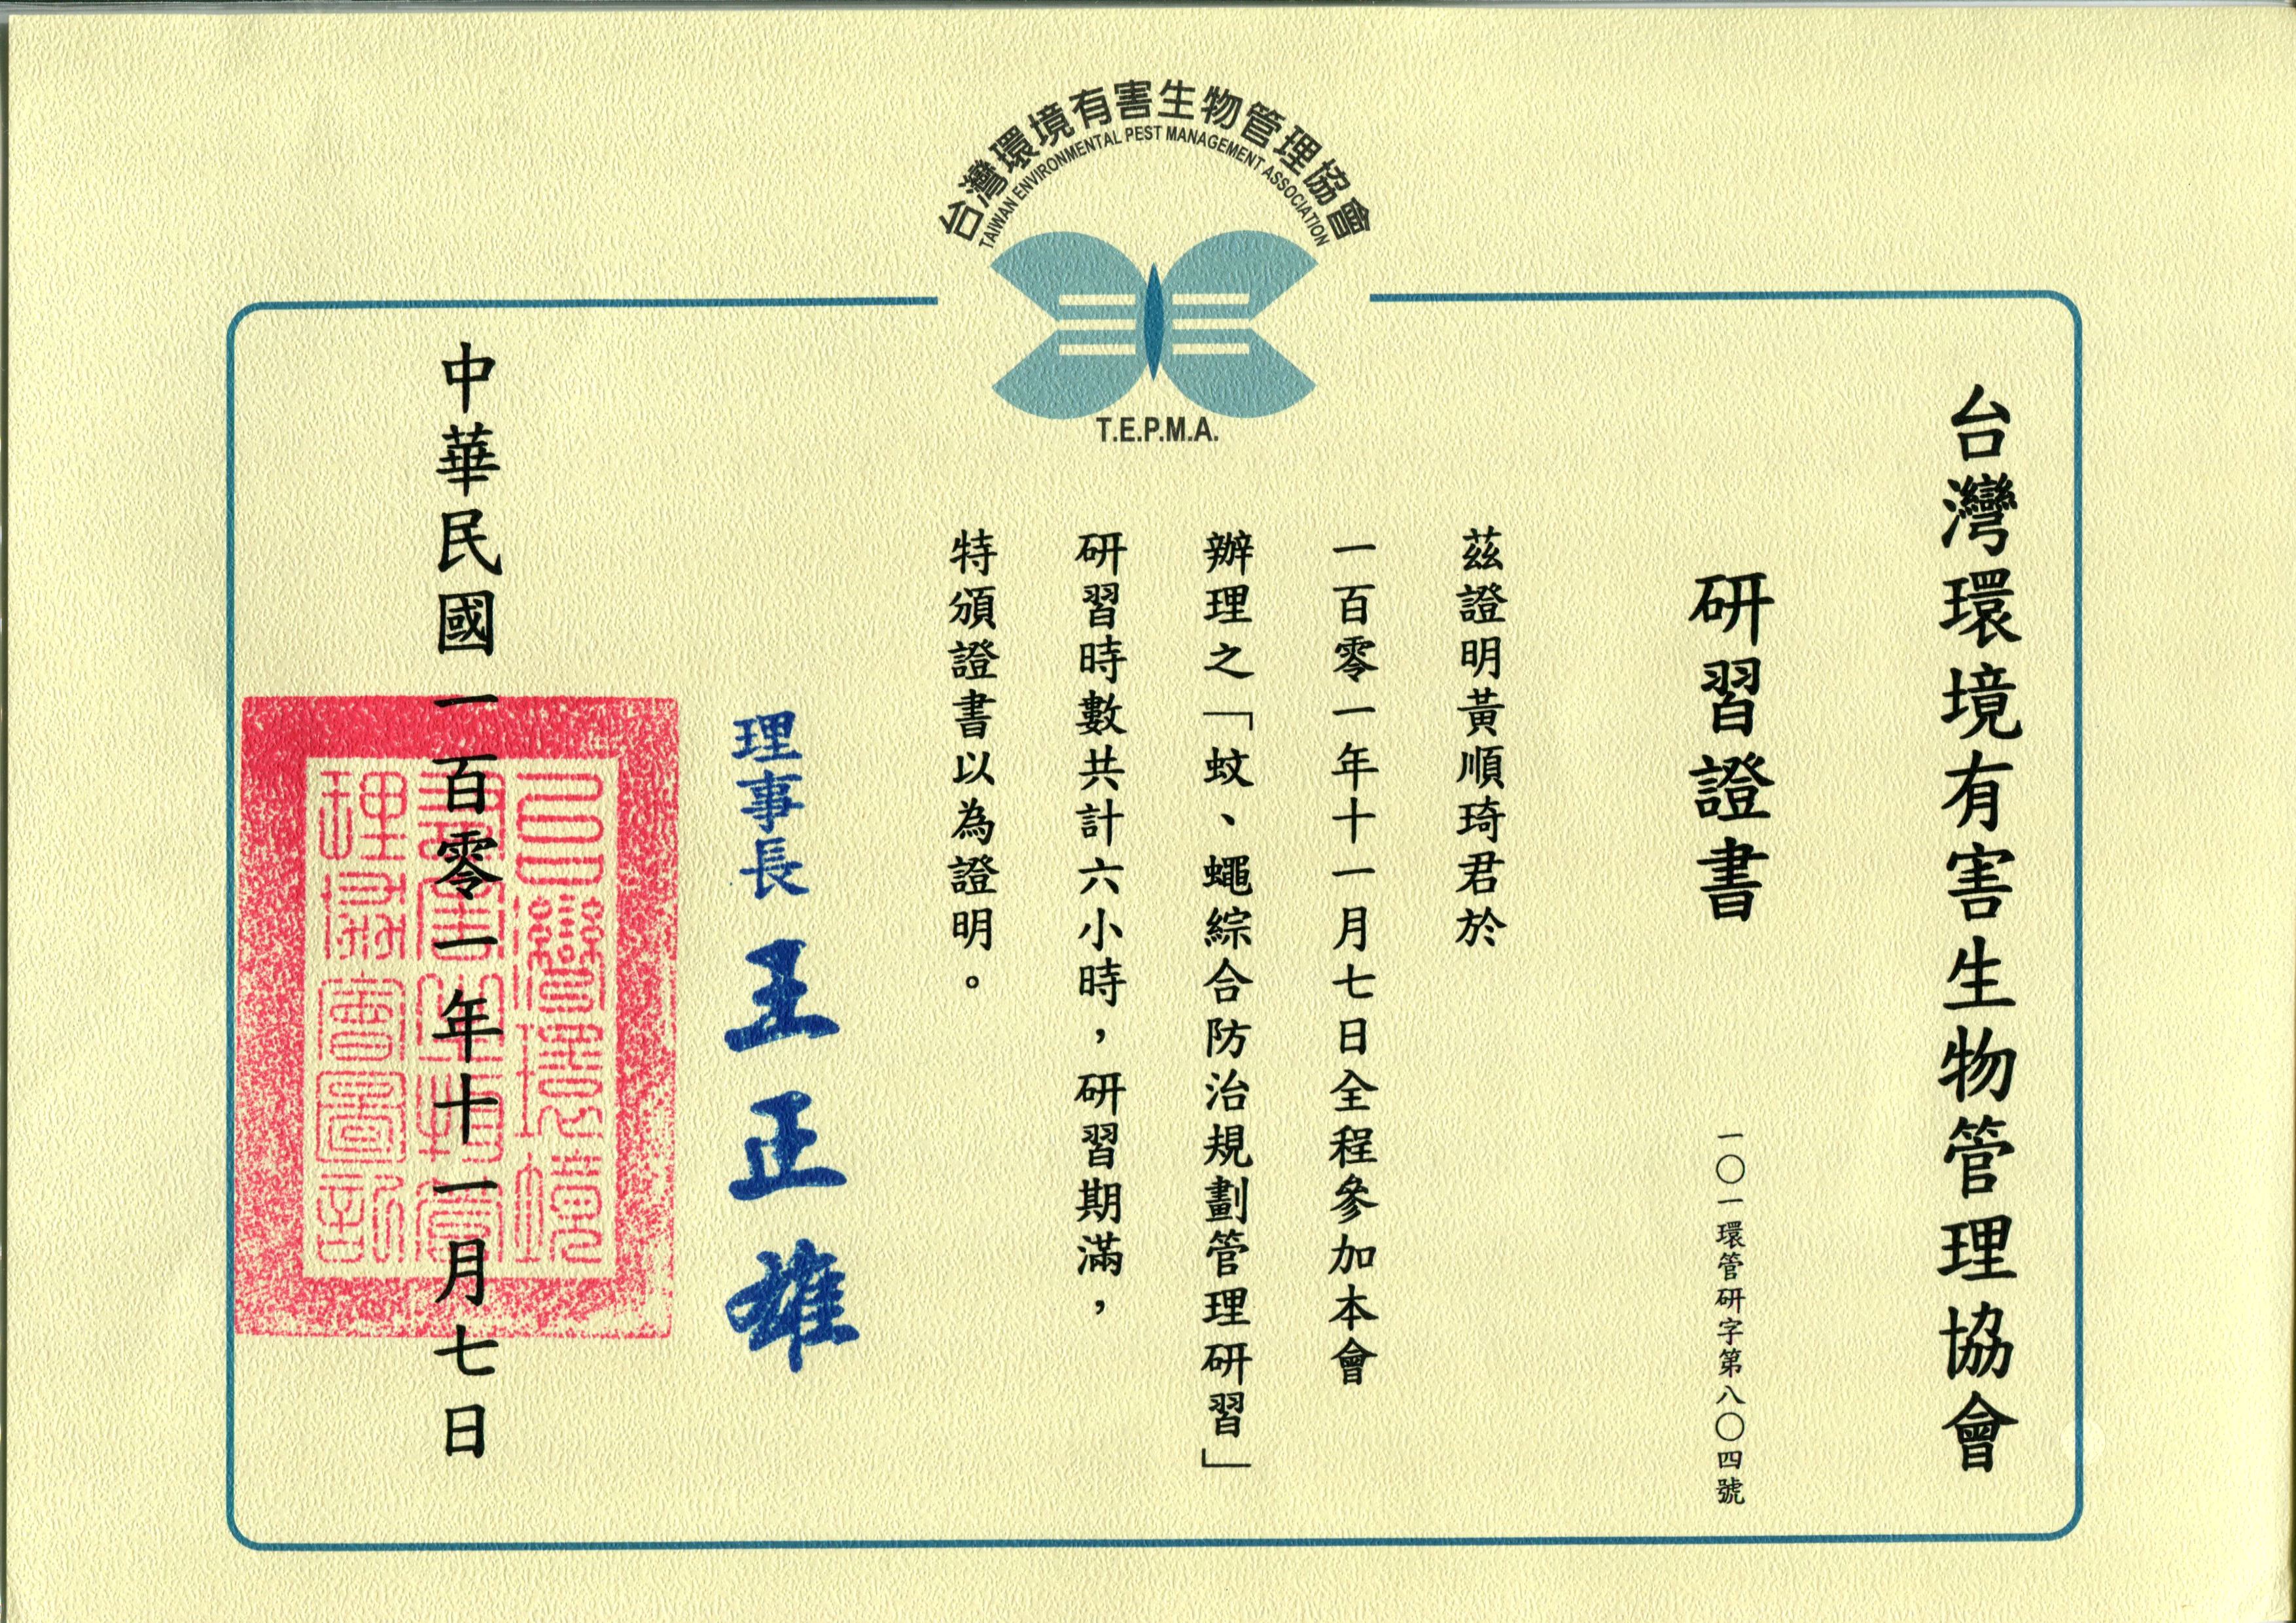 台灣環境有害生物管理協會
TAIWAN ENVIRONMENTAL PEST MANAGEMENT ASSOCIATION
T.E.P.M.A.
台灣環境有害生物管理協會
研習證書
一〇一環管研字第八〇四號
茲證明黃順琦君於
一百零一年十一月七日全程參加本會
辦理之「蚊、蠅綜合防治規劃管理研習」
研習時數共計六小時，研習期滿，
特頒證書以為證明。
理事長 王正雄
中華民國一百零一年十一月七日
台灣環境
有害生物管
理協會圖記